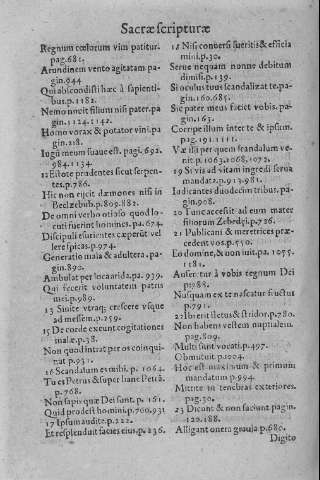 Sacræ scripturæ
Regnum cœlorum vim patitur.
pag.681.
Arundinem vento agitatam.pa-
gin.944
Qui abscondisti hæc à sapienti-
bus.p.1182.
Nemo nouit filium nisi pater.pa
gin.1124.1142.
Homo vorax & potator vini.pa
gin.218.
Iugũ meum suaue est.pagi.692.
984.1134
12 Estote prudentes sicut serpen-
tes.p.786.
Hic non eijcit dæmones nisi in
Beelzebub.p.809.882.
De omni verbo otioso quod lo-
cuti fuerint homines.pa.674.
Discipuli esurientes cœperũt vel
lere spicas.p.974.
Generatio mala & adultera.pa-
gin.890.
Ambulat per loca arida.pa.939.
Qui fecerit voluntatem patris
mei.p.989.
13 Sinite vtraq; crescere vsque
ad messem.p.259.
15 De corde exeunt cogitationes
malæ.p.38.
Non quod intrat per os coinqui-
nat p.931.
16 Scandalum es mihi.p.1064.
Tu es Petrus & super hanc Petrã.
p.768.
Non sapis quæ Dei sunt.p.161.
Quid prodest homini.p.700.931
17 Ipsum audite.p.222.
Et resplenduit facies eius.p.236.
18 Nisi conuersi fueritis & efficia
mini.p.30.
Serue nequam nonne debitum
dimisi.p.139.
Si oculus tuus scandalizat te.pa-
gin.160.685.
Sic pater meus faciet vobis.pa-
gin.163.
Corripe illum inter te & ipsum.
pag.191.1111.
Væ illi per quem scandalum ve-
nit.p.1063.1068.1072.
19 Si vis ad vitam ingredi serua
mandata.p.913.981.
Iudicantes duodecim tribus.pa-
gin.908.
20 Tunc accessit ad eum mater
filiorum Zebedęi.p.726.
21 Publicani & meretrices præ-
cedent vos.p.550.
Eo domine, & non iuit.pa.1055.
1181.
Auferetur à vobis regnum Dei
p.785.
Nusquam ex te nascatur fructus
p.791.
22 Ibi erit fletus & stridor.p.780.
Non habens vestem nuptialem.
pag.809.
Multi sunt vocati.p.497.
Obmutuit.p.1004.
Hoc est maximum & primum
mandatum p.994.
Mittite in tenebras exteriores.
pag.30.
23 Dicunt & non faciunt.pagin.
120.188.
Alligant onera grauia.p.680.
Digito